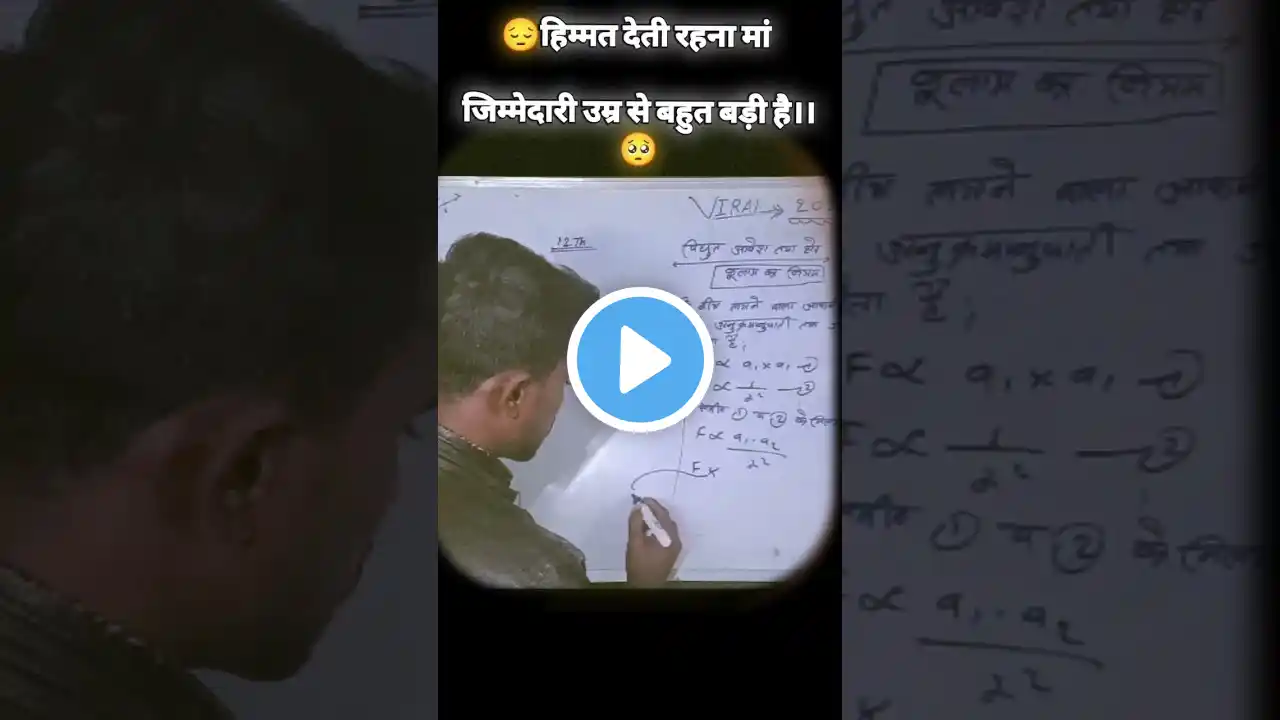 😔हिम्मत देती रहना मां
जिम्मेदारी उम्र से बहुत बड़ी है।।
🥺
VIRAL → 20
12th
विद्युत आवेश तथा क्षेत्र
कूलाम का नियम
बीच लगने वाला
अनुक्रमानुपाती तथा
है;
∝ q₁ × q₁ —①
∝ 1/r² —②
① व ② को मिलाने
F ∝ q₁.q₂/r²
F